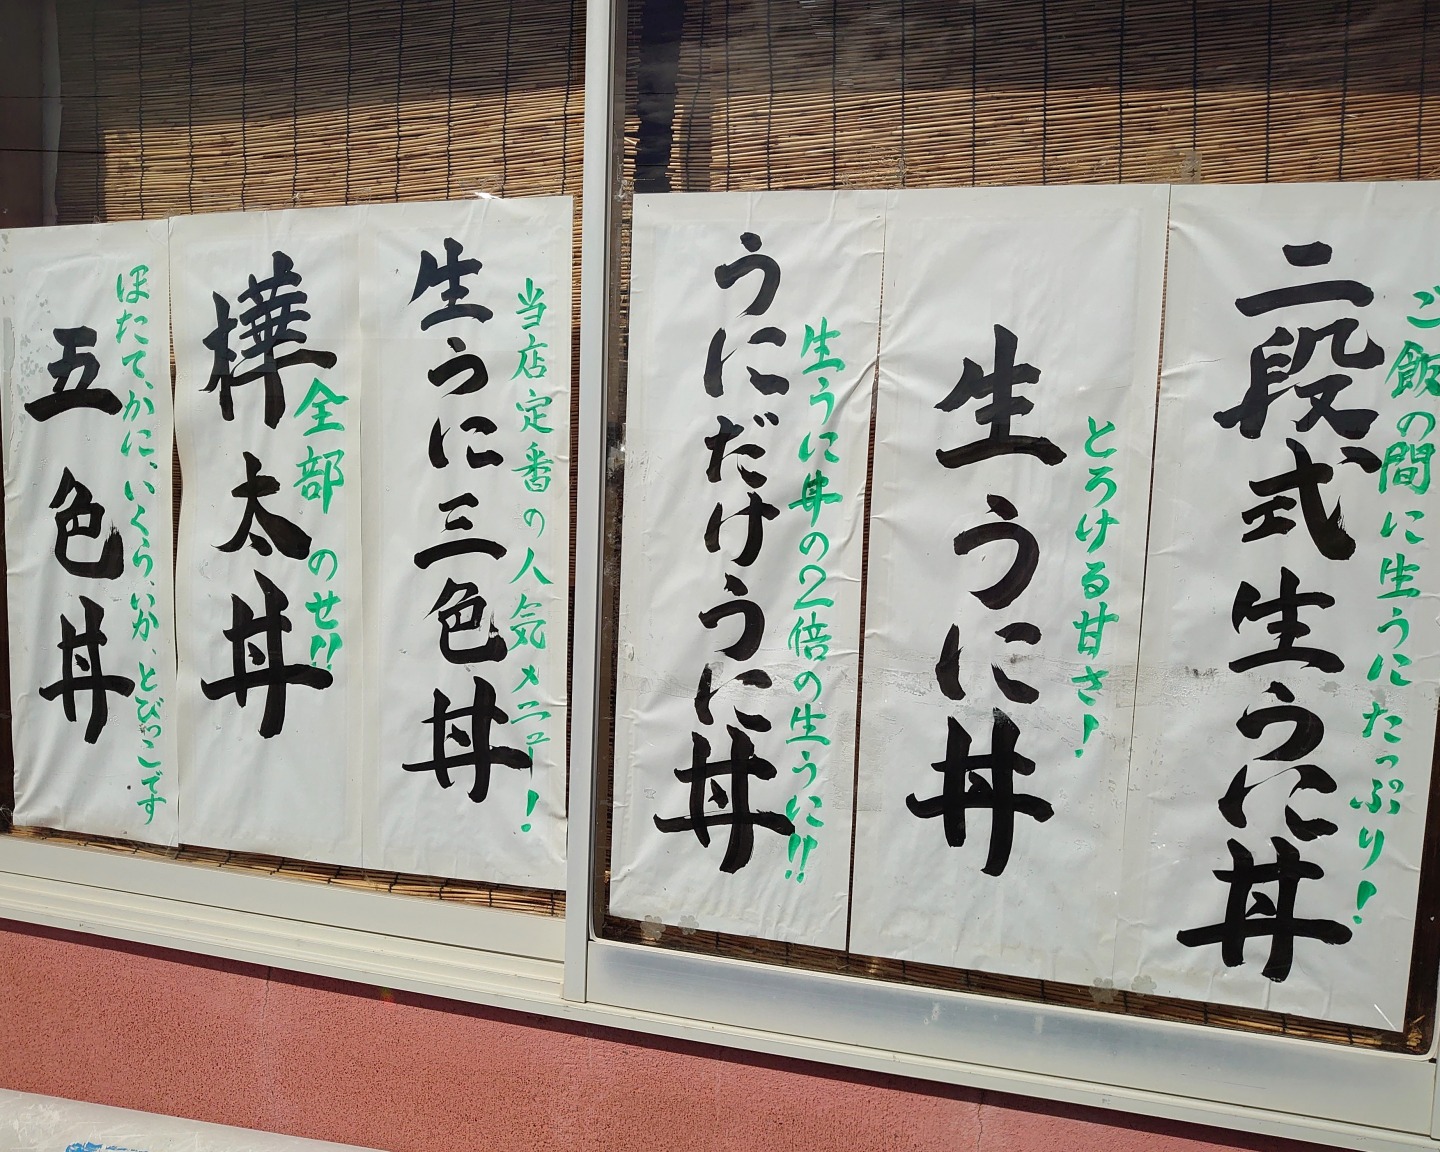 ご飯の間に生うにたっぷり!
二段式生うに丼
とろける甘さ!
生うに丼
生うに丼の2倍の生うに!!
うにだけうに丼
当店定番の人気メニュー!
生うに三色丼
全部のせ!!
樺太丼
ほたて、かに、いくら、いか、とびっこです
五色丼